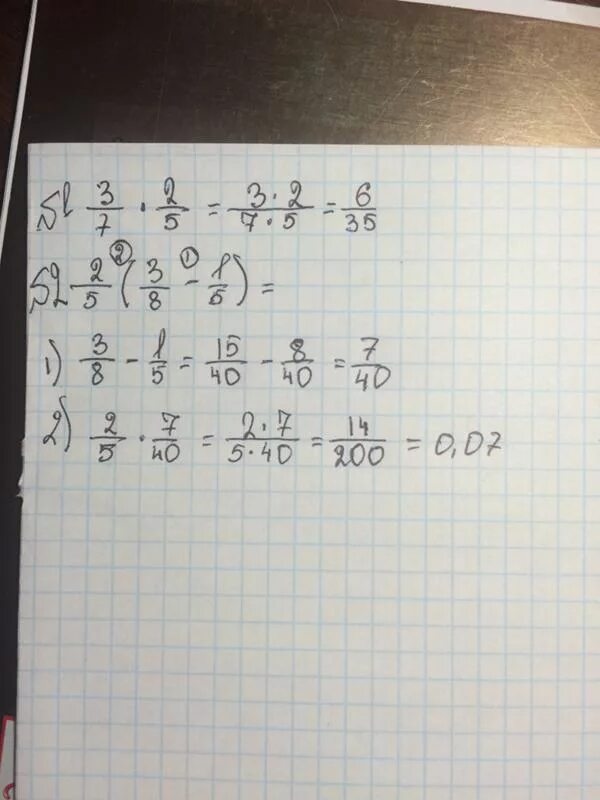 №1 3/7 · 2/5 = 3·2/7·5 = 6/35
№2 2/5 ② (3/8 ① − 1/5) =
1) 3/8 − 1/5 = 15/40 − 8/40 = 7/40
2) 2/5 · 7/40 = 2·7/5·40 = 14/200 = 0,07